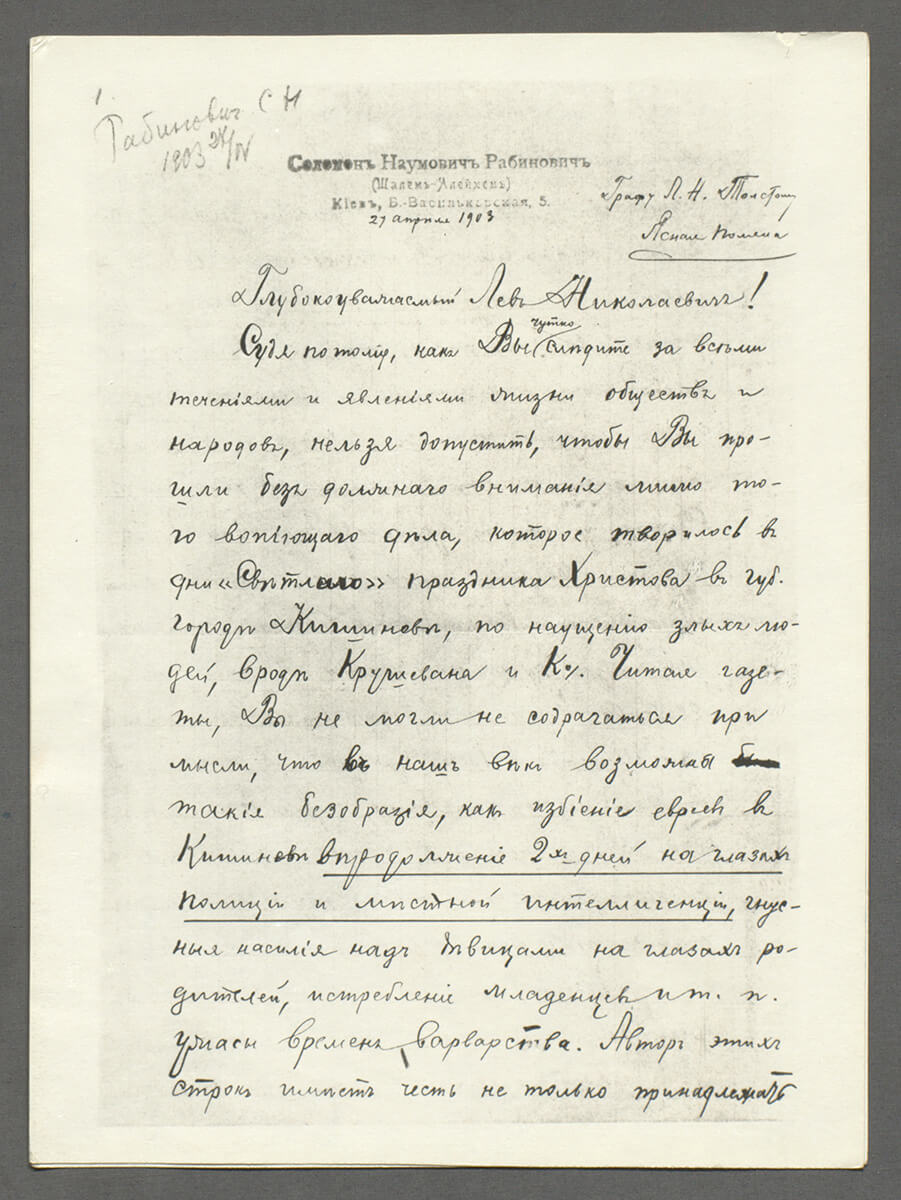 1.
Рабинович С Н
1903 27/IV
Соломонъ Наумовичъ Рабиновичъ
(Шалемъ-Алейхемъ)
Кіевъ, Б.-Васильковская, 5.
27 апреле 1903
Графу Л. Н. Толстому
Ясная Поляна
Глубокоуважаемый Левъ Николаевичъ!
чутко
Судя по тому, какъ Вы слѣдите за всѣми
теченіями и явленіями жизни обществъ и
народовъ, нельзя допустить, чтобы Вы про-
шли безъ должнаго вниманія мимо то-
го вопіющаго дѣла, которое творилось въ
дни «Свѣтлаго» праздника Христова въ губ.
городѣ Кишиневѣ, по наущенію злыхъ лю-
дей, вродѣ Крушевана и Ко. Читая газе-
ты, Вы не могли не содрагаться при
мысли, что въ нашъ вѣкъ возможны
такія безобразія, какъ избіеніе евреевъ въ
Кишиневѣ впродолженіе 2хъ дней на глазахъ
полиціи и мѣстной интеллигенціи, гнус-
ныя насилія надъ дѣвицами на глазахъ ро-
дителей, истребленіе младенцевъ и т. п.
ужасы временъ варварства. Авторъ этихъ
строкъ имѣетъ честь не только принадлежать